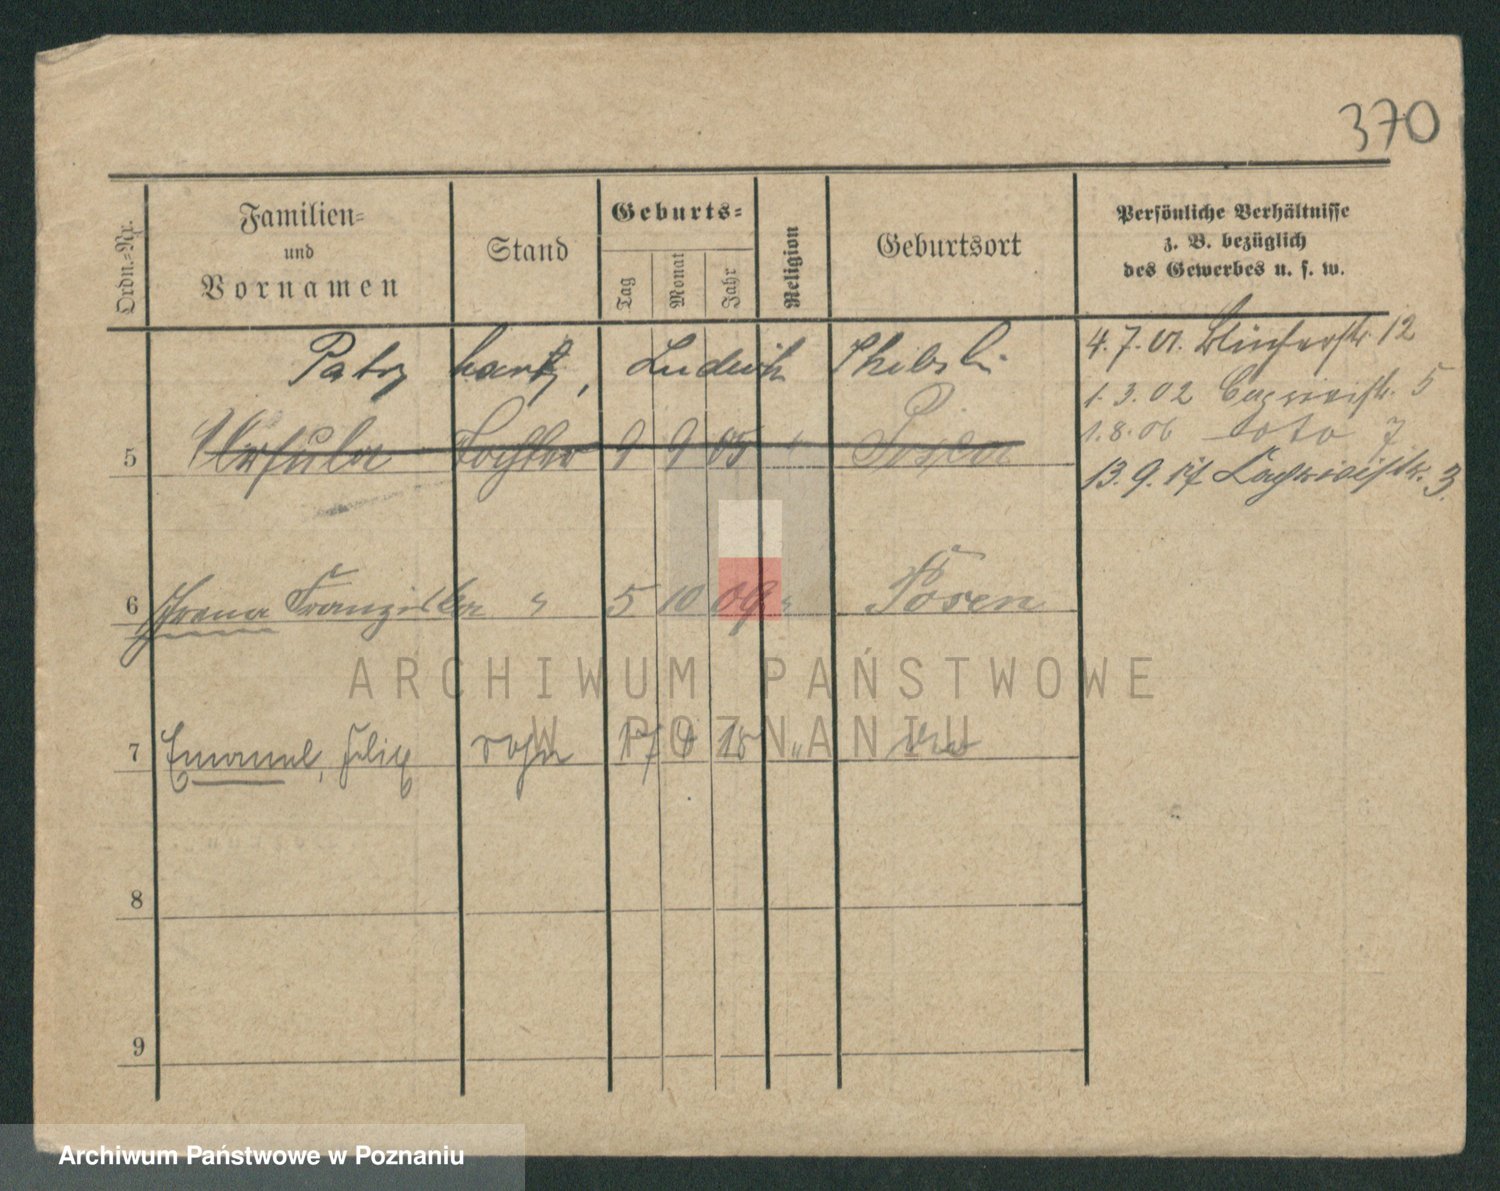 370
Ordn.-Nr.
Familien-
und
Vornamen
Stand
Geburts-
Tag
Monat
Jahr
Religion
Geburtsort
Persönliche Verhältnisse
z. B. bezüglich
des Gewerbes u. s. w.
Ludwik
4.7.01. 12
1.3.02 5
1.8.06 doto 7
13.9.17 3.
5 Ursula Tochter 9 9 05 " Posen
6 Irena Franziska " 5 10 09 " Posen
7 Emanuel, Felix Sohn 17 "
8
9
ARCHIWUM PAŃSTWOWE
W POZNANIU
Archiwum Państwowe w Poznaniu